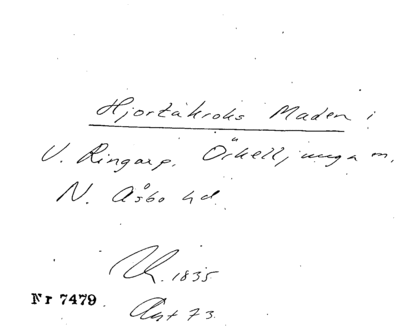 Hjortåkroks Maden i
V. Ringarp. Örkelljunga m.
N. Åsbo hd.
1835
Nr 7479.
Akt 73.